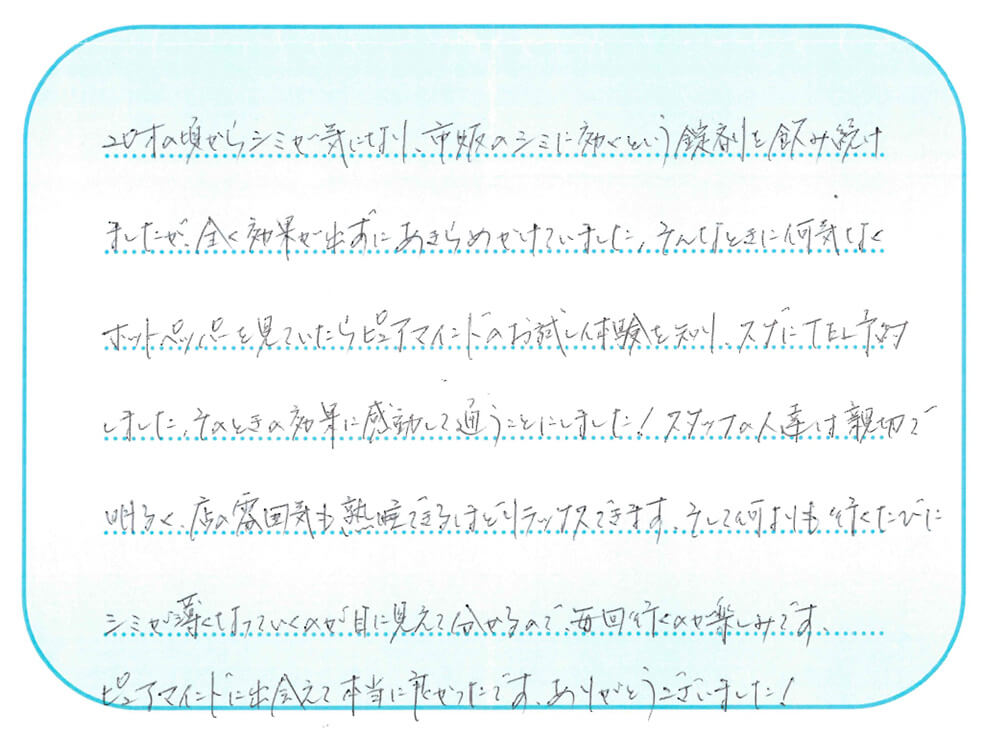 20才の頃からシミが気になり、市販のシミに効くという錠剤を飲み続け
ましたが、全く効果が出ずにあきらめかけていました。そんなときに何気なく
ホットペッパーを見ていたらピュアマインドのお試し体験を知り、スグにTEL予約
しました。そのときの効果に感動して通うことにしました！スタッフの人達は親切で
明るく、店の雰囲気も熟睡できるほどリラックスできます。そして何よりも行くたびに
シミが薄くなっていくのが目に見えて分かるので、毎回行くのが楽しみです。
ピュアマインドに出会えて本当に良かったです。ありがとうございました！